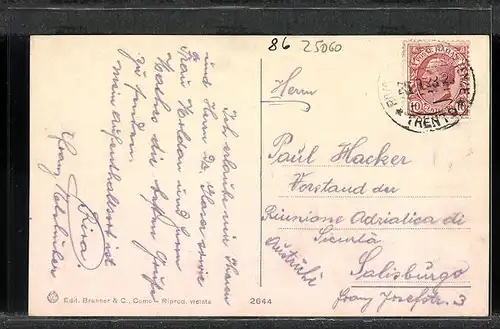 86 25060
Ich erlaube mir Ihnen
und Herrn Dr. sowie
Frau und Herrn
Hacker die besten Grüße
zu senden.
mein Aufenthaltsort ist
Riva.
Franz
Herrn
Paul Hacker
Vorstand der
Riunione Adriatica di
Sicurtà
Austria
Salisburgo
Franz Josefstr. 3
* TRENTO *
10
Edit. Brunner & C., Como - Riprod. vietata
2644